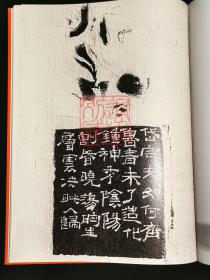 岱宗夫如何齊
魯青未了造化
鍾神秀陰陽
割昏曉蕩胸生
層雲決眥入歸